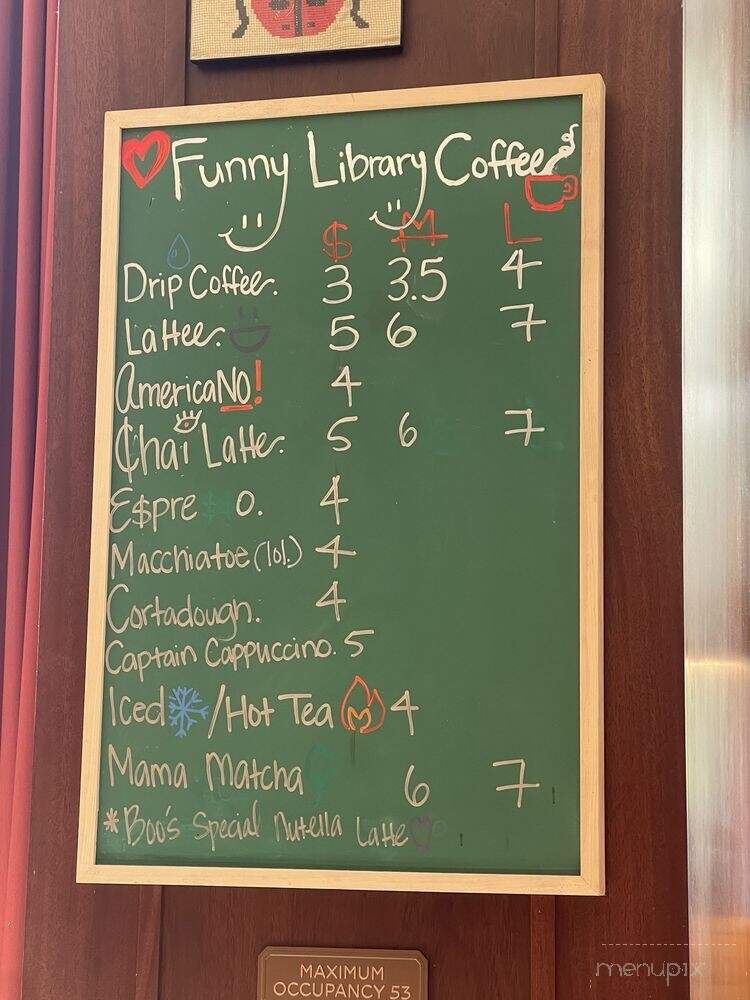 Funny Library Coffee
$ M L
Drip Coffee. 3 3.5 4
Lattee. 5 6 7
AmericaNO! 4
Chai Latte. 5 6 7
E$pre$$o. 4
Macchiatoe (lol.) 4
Cortadough. 4
Captain Cappuccino. 5
Iced /Hot Tea 4
Mama Matcha 6 7
*Boo's Special Nutella Latte
MAXIMUM
OCCUPANCY 53
menupix